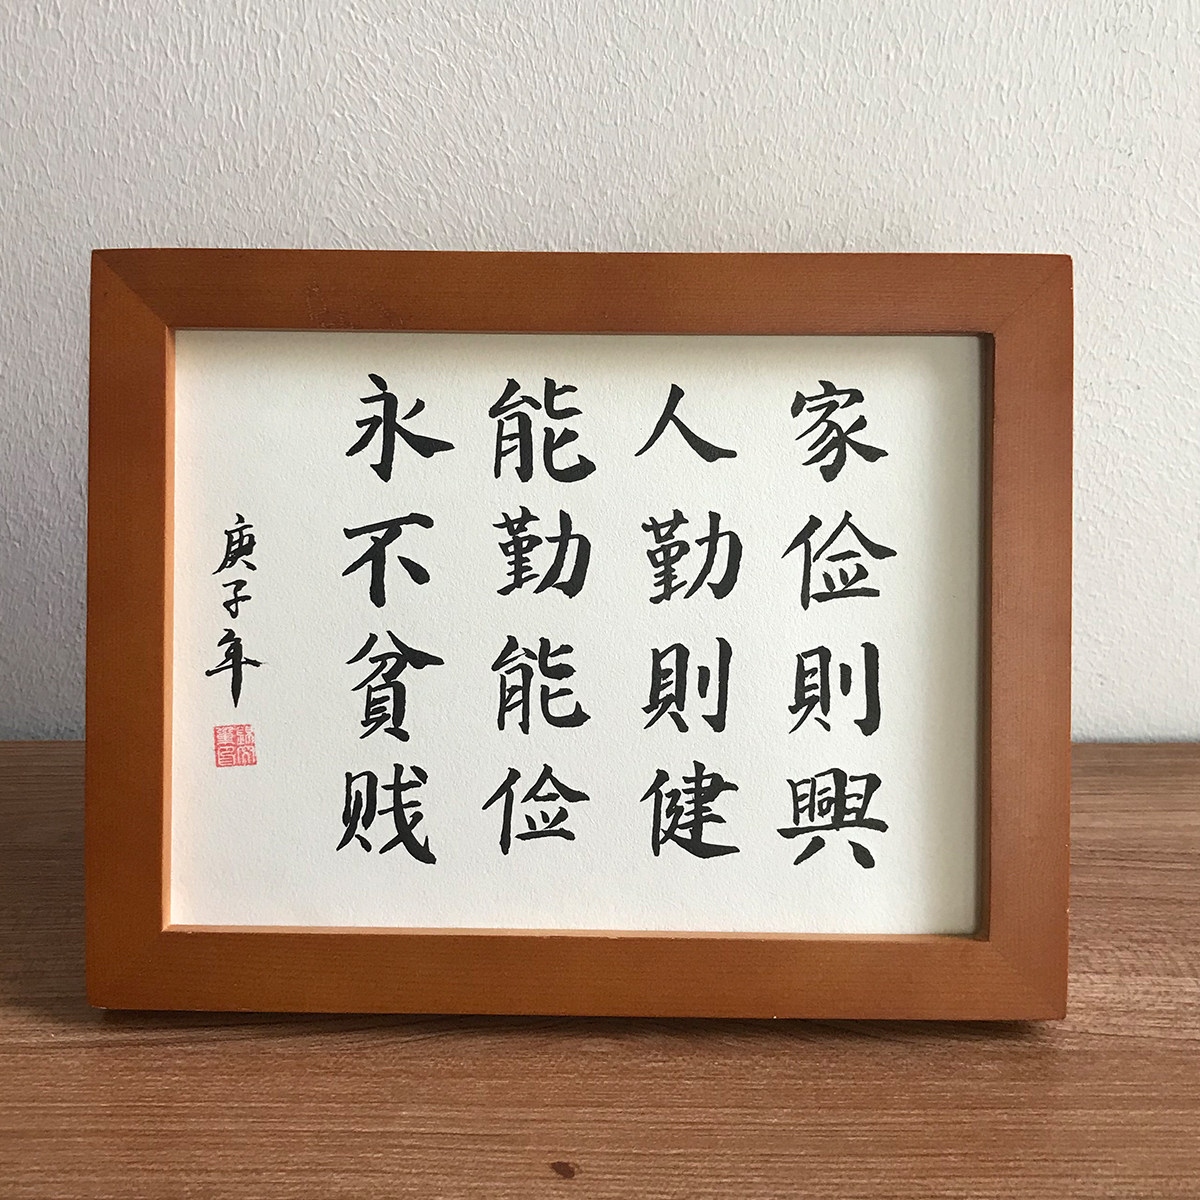 家俭則興
人勤則健
能勤能俭
永不貧贱
庚子年